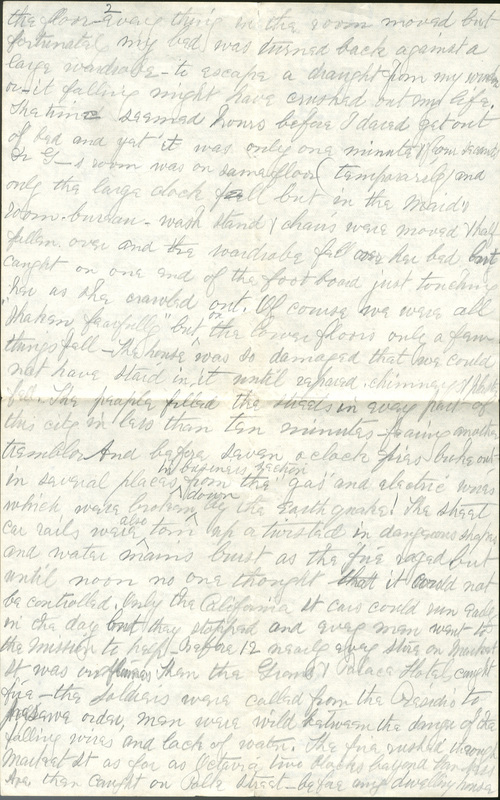 the floor - every thing in the room moved but
fortunatel my bed was turned back against a
large wardrobe - to escape a draught from my window
or - it falling might have crushed out my life.
The time seemed hours before I dared get out
of bed and yet it was only one minute
Dr G—s room was on same floor (temporarily) and
only the large clock fell but in the maid's
room - bureau - wash stand & chairs were moved & half
fallen over and the wardrobe fell over her bed but
caught on one end of the foot board just touching
her as she crawled out. Of course we were all
"shaken fearfully" but on the lower floors only a few
things fell - The house was so damaged that we could
not have staid in it until repaired, chimneys
The people filled the streets in every part of
this city in less than ten minutes - fearing another
temblor. And before seven o clock fires broke out
in several places in business section from the gas and electric wires
which were broken down by the Earthquake! The street
car rails were also torn up & twisted in dangerous shapes
and water mains burst as the fire raged but
until noon no one thought that it could not
be controlled. Only the California St cars could run early
in the day but they stopped and every man went to
the Mission to help - Before 12 nearly every store on Market
St was in flames then the Grand & Palace Hotel caught
fire - the soldiers were called from the Presidio to
preserve order, men were wild between the danger of the
falling wires and lack of water. The fire rushed through
Market St as far as Octavia two blocks beyond Van Ness
Ave then caught on Polk Street - before any dwelling houses